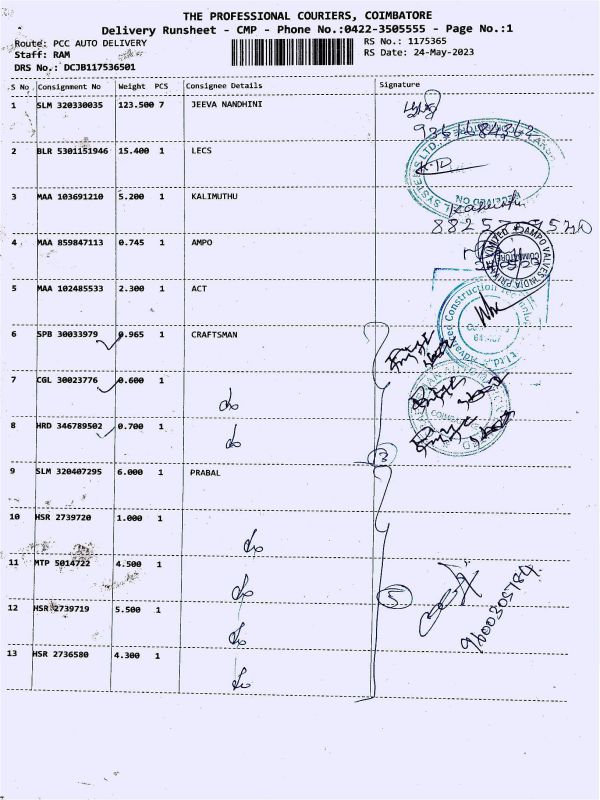 THE PROFESSIONAL COURIERS, COIMBATORE
Delivery Runsheet - CMP - Phone No.:0422-3505555 - Page No.:1
Route: PCC AUTO DELIVERY RS No.: 1175365
Staff: RAM RS Date: 24-May-2023
DRS No.: DCJB117536501
S No Consignment No Weight PCS Consignee Details Signature
1 SLM 320330035 123.500 7 JEEVA NANDHINI
2 BLR 5301151946 15.400 1 LECS
3 MAA 103691210 5.200 1 KALIMUTHU
4 MAA 859847113 0.745 1 AMPO
5 MAA 102485533 2.300 1 ACT
6 SPB 30033979 0.965 1 CRAFTSMAN
7 CGL 30023776 0.600 1 do
8 HRD 346789502 0.700 1 do
3
9 SLM 320407295 6.000 1 PRABAL
10 HSR 2739720 1.000 1 do
11 MTP 5014722 4.500 1 do
5
12 HSR 2739719 5.500 1 do
9600305784
13 HSR 2736580 4.300 1 do